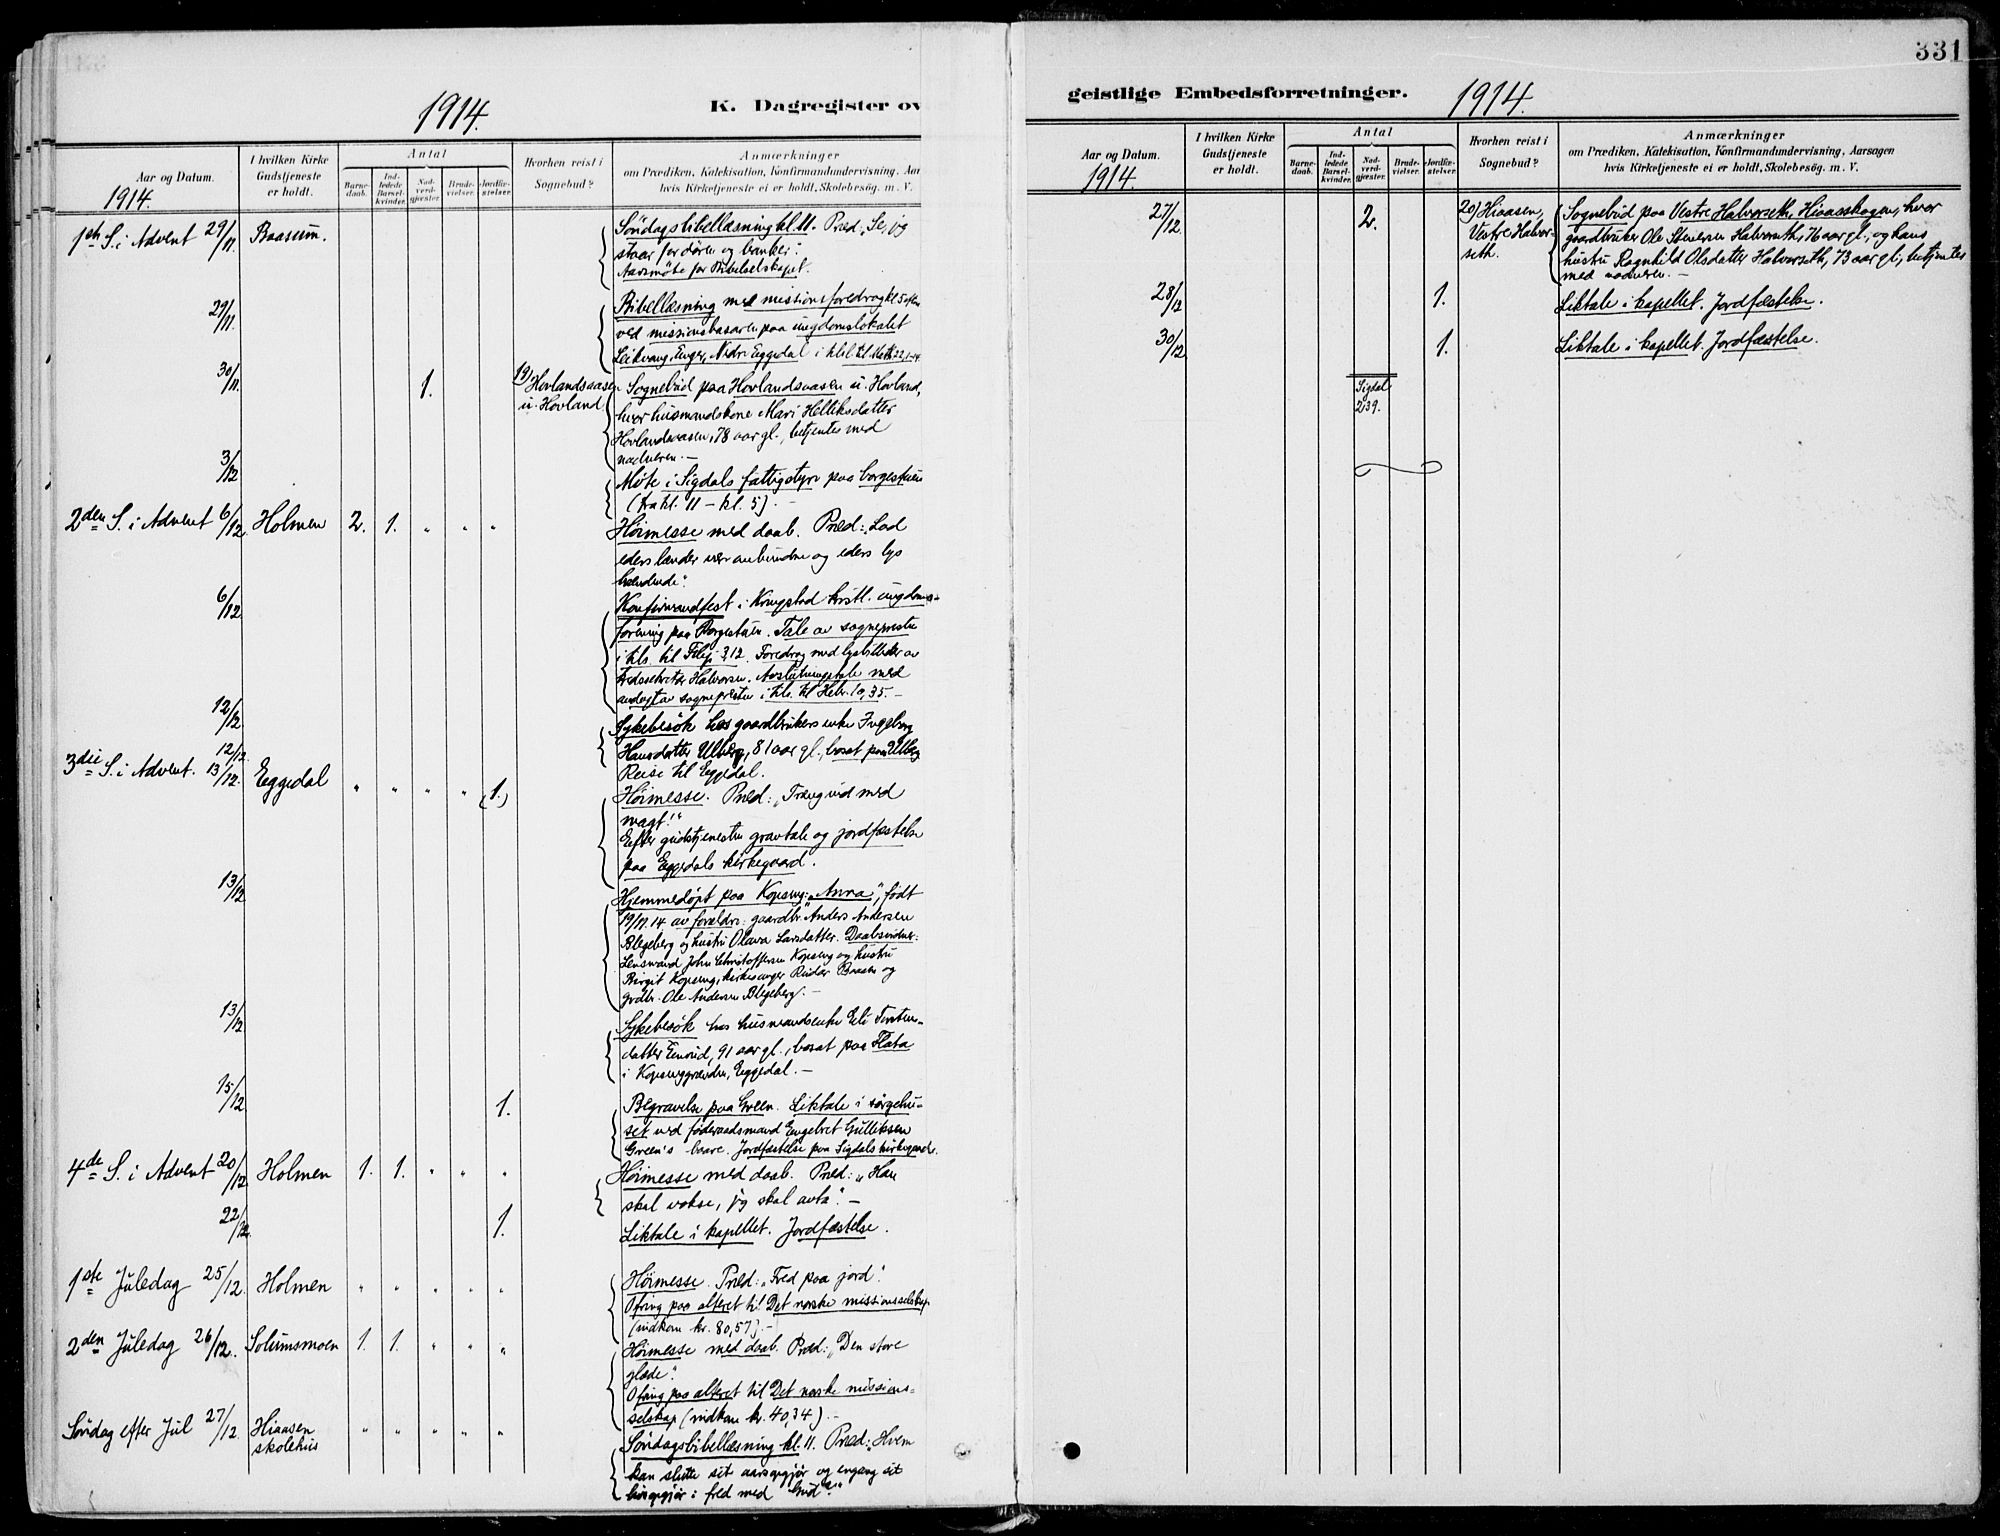 331
1914.
K. Dagregister ov
Aar og Datum.
1914.
I hvilken Kirke
Gudstjeneste
er holdt.
Antal
Barne-
daab.
Ind-
ledede
Barsel-
kvinder.
Nad-
verd-
gjæster.
Brude-
vielser.
Jordfæ-
stelser.
Hvorhen reist i
Sognebud?
Anmærkninger
om Prædiken, Katekisation, Konfirmandundervisning, Aar
hvis Kirketjeneste ei er holdt, Skolebesøg. m. V.
1ste S. i Advent 29/11. Baasum. Søndagsbibellæsning kl. 11. Præd. „Se, jeg
staar for døren og banker."
Aarsmøte for Bibelselskapet.
29/11. Bibellæsning med missionsforedrag kl 5 eftm
ved missionsbasaren paa ungdomslokalet
Leikvang, Enger, Nedre Eggedal i tilsl. til Math 22, 1-14.
30/11. 1. 19) Hovlandsaasen
u. Hovland. Sognebud paa Hovlandsaasen u. Hovland,
hvor husmandskone Mari Helliksdatter
Hovlandsaasen, 78 aar gl., betjentes med
nadveren. —
3/12 Møte i Sigdals fattigstyre paa Borgestuen
(fra kl. 11 – kl. 5). —
2den S. i Advent 6/12. Holmen 2. 1. " " " Høimesse med daab. Præd: „Lad
eders lænder være ombundne og eders lys
brændende".
6/12 Konfirmandfest i Krogstad kristl. ungdoms-
forening paa Borgestuen. Tale av sogneprester
i tils. til Filip 3,12. Foredrag med lysbilleder av
Halvorsen. Avslutningstale med
andagt av sogneprester i tils. til Hebr. 10, 35. —
12/12 Sykebesøk hos gaardbrukers enke Ingeborg
Hansdatter Ulberg, 81 aar gl., bosat paa Ulberg
12/12. Reise til Eggedal.
3die S. i Advent. 13/12. Eggedal " " " " (1.) Høimesse. Præd: „Træng ind med
magt!"
Efter gudstjenesten gravtale og jordfæstelse
paa Eggedals kirkegaard.
13/12 Hjemmedøpt paa Kopseng: „Anna", født
19/11. 14 av forældre: gaardbr. Anders Andersen
Blegeberg og hustru Olava Larsdatter. Daabsvidner:
Lensmand John Christoffersen Kopseng og hustru
Birgit Kopseng, kirkesanger Reidar Baasen og
grdbr. Ole Andersen Blegeberg. —
13/12 Sykebesøk hos husmandsenke Eli Torsteins-
datter Emrud, 91 aar gl., bosat paa Flata
i Kopsenggrænden, Eggedal. —
15/12 1. Begravelse paa Green. Liktale i sørgehu-
set ved føderaadsmand Engebret Gulliksen
Green's baare. Jordfæstelse paa Sigdals kirkegaard.
4de S. i Advent 20/12 Holmen 1. 1. " " " Høimesse med daab. Præd: „Han
skal vokse, jeg skal avta". —
22/12. 1. Liktale i kapellet. Jordfæstelse.
1ste Juledag 25/12. Holmen " " " " " Høimesse. Præd: „Fred paa jord".
Ofring paa alteret til Det norske missionsselskap
(indkom kr. 80,57). —
2den Juledag 26/12. Solumsmoen 1. 1. " " " Høimesse med daab. Præd: „Den store
glæde".
Ofring paa alteret til Det norske missions-
selskap (indkom kr. 40,34). —
Søndag efter Jul 27/12. Hiaasen
skolehus " " " " " Søndagsbibellæsning kl. 11. Præd: „Hvem
kan slutte sit aarsopgjør og engang sit
livsopgjør i fred med Gud?"
geistlige Embedsforretninger.
1914.
Aar og Datum.
1914.
I hvilken Kirke
Gudstjeneste
er holdt.
Antal
Barne-
daab.
Ind-
ledede
Barsel-
kvinder.
Nad-
verd-
gjæster.
Brude-
vielser.
Jordfæ-
stelser.
Hvorhen reist i
Sognebud?
Anmærkninger
om Prædiken, Katekisation, Konfirmandundervisning, Aarsagen
hvis Kirketjeneste ei er holdt, Skolebesøg. m. V.
27/12. 2. 20) Hiaasen,
Vestre Halvor-
seth. Sognebud paa Vestre Halvorseth, Hiaasskogen, hvor
gaardbruker Ole Steinersen Halvorseth, 76 aar gl., og hans
hustru Ragnhild Olsdatter Halvorseth, 73 aar gl., betjentes
med nadveren. —
28/12 1. Liktale i kapellet. Jordfæstelse.
30/12 1. Liktale i kapellet. Jordfæstelse.
Sigdal
239.